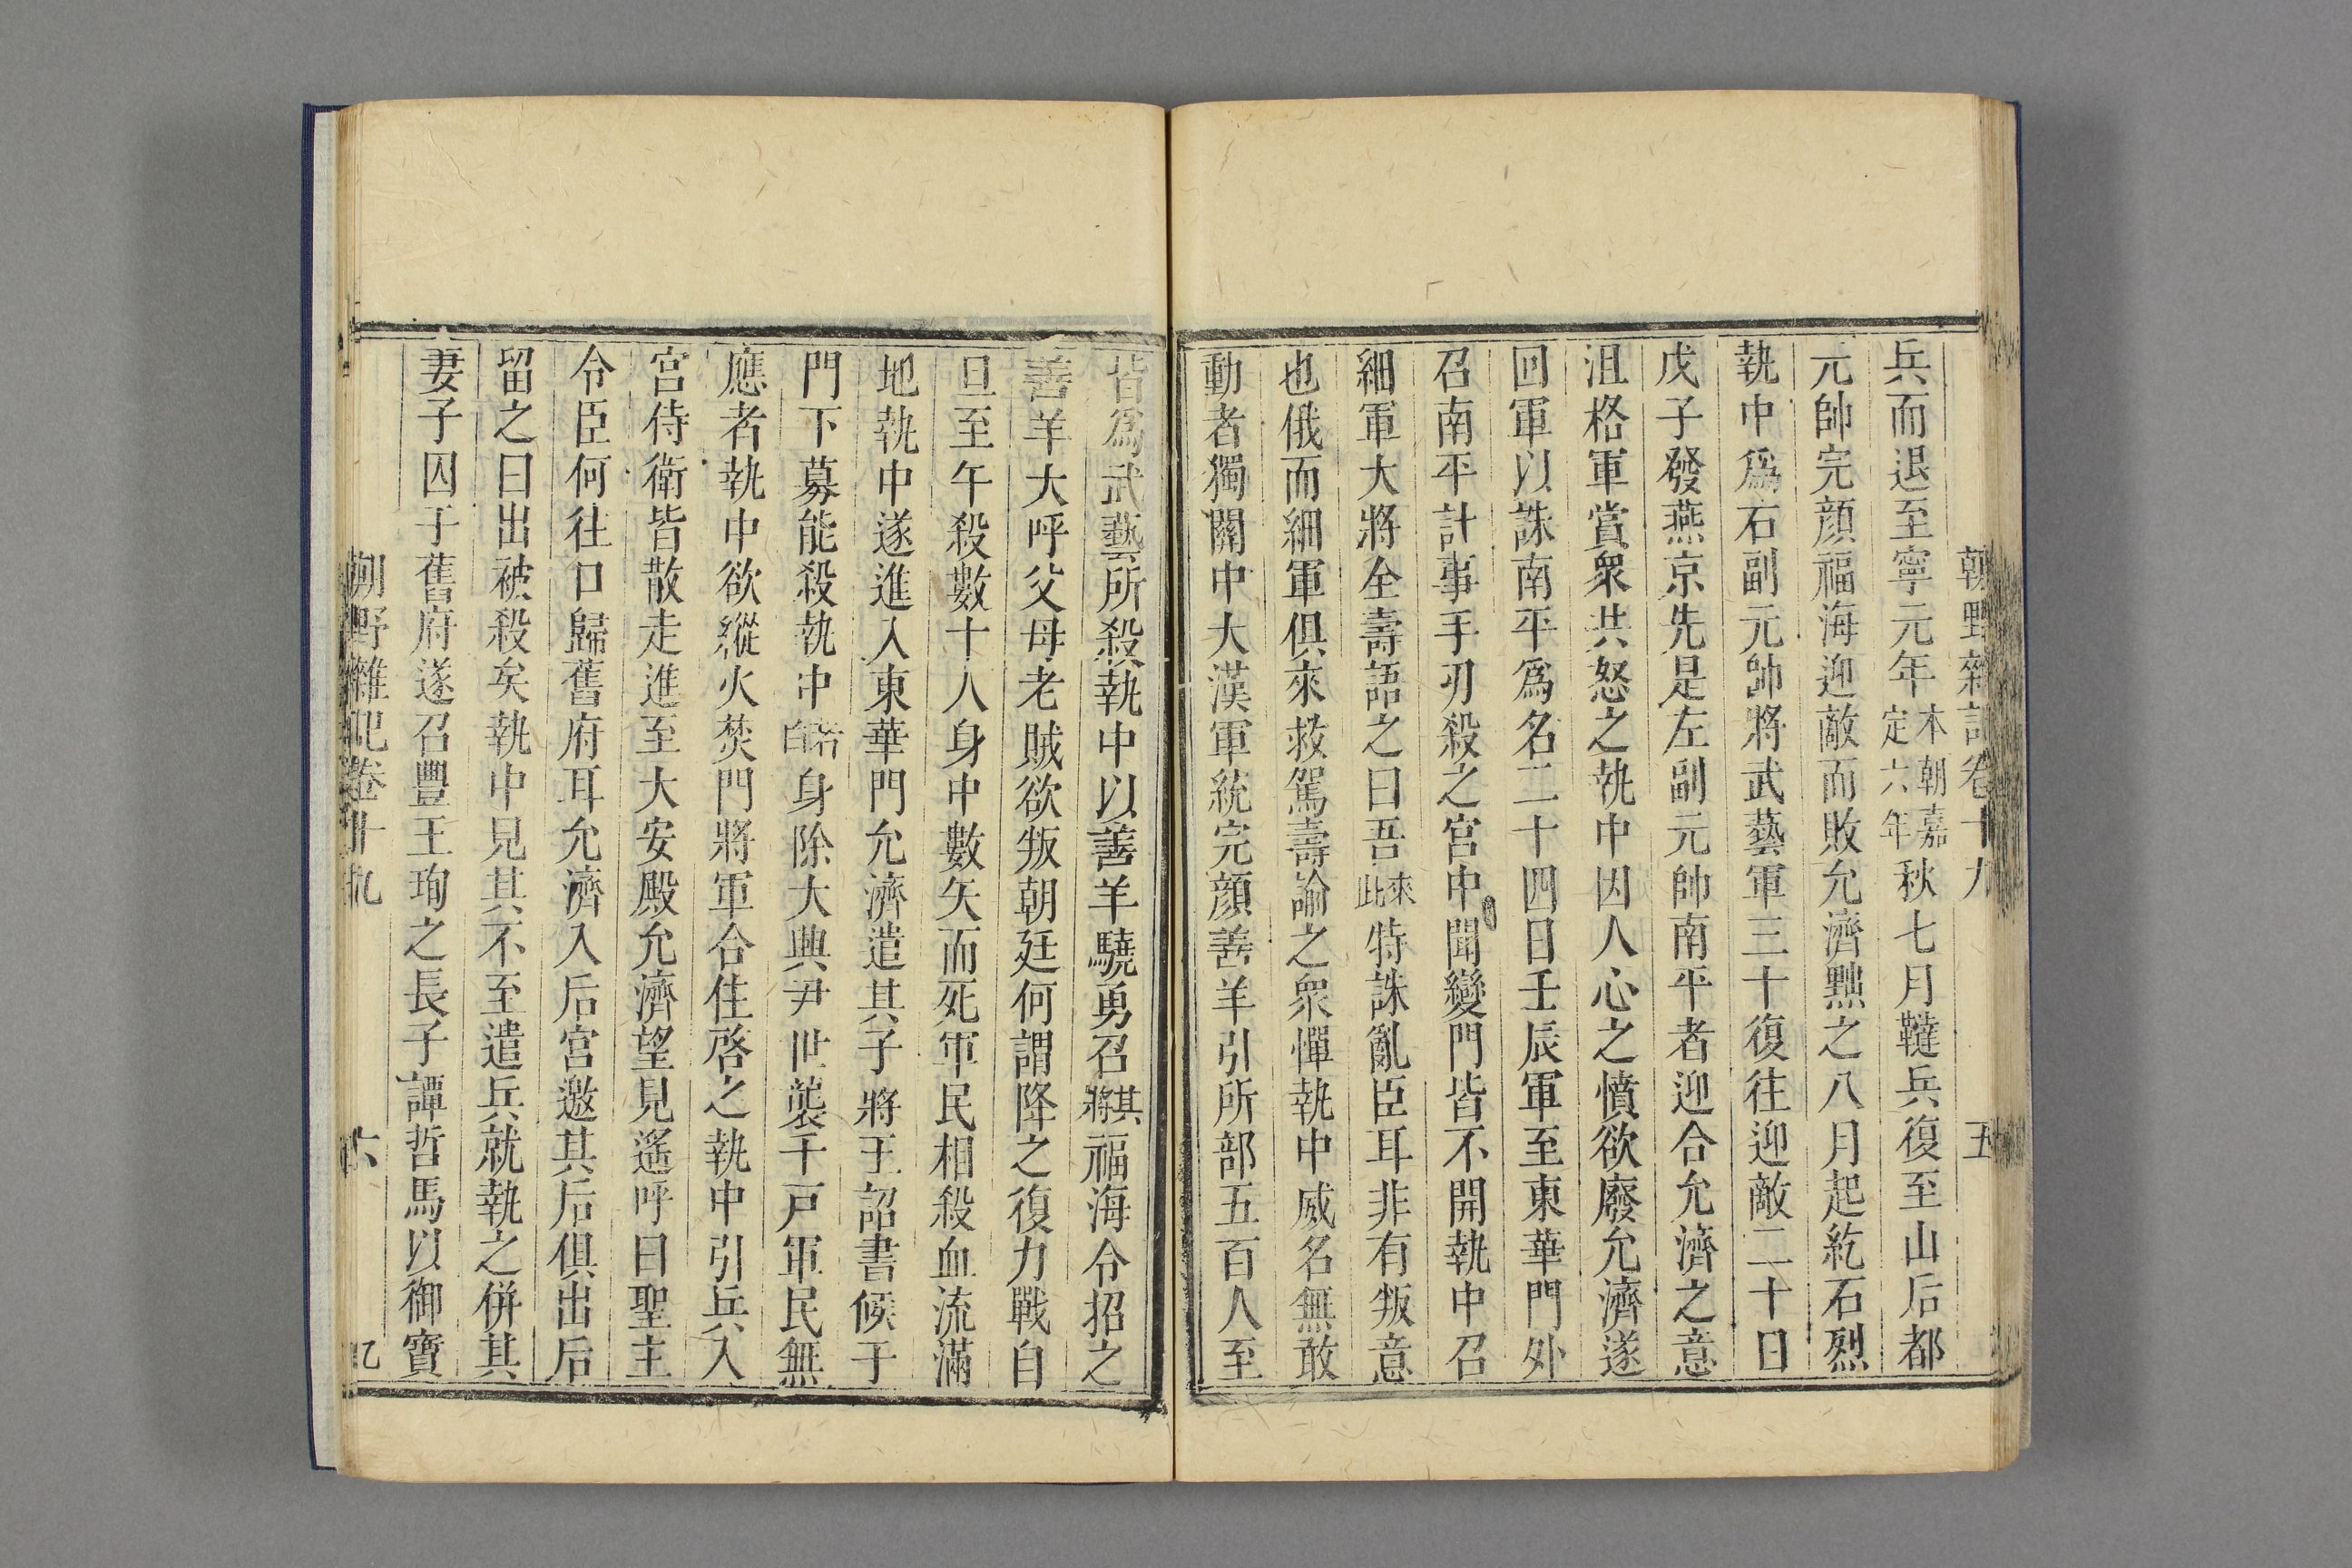 朝野雜記卷十九 五
兵而退至寧元年本朝嘉定六年秋七月韃兵復至山后都
元帥完顔福海迎敵而敗允濟黜之八月起紇石烈
執中爲右副元帥將武藝軍三十復往迎敵二十日
戊子發燕京先是左副元帥南平者迎合允濟之意
沮格軍賞衆共怒之執中因人心之憤欲廢允濟遂
回軍以誅南平爲名二十四日壬辰軍至東華門外
召南平計事手刃殺之宮中聞變門皆不開執中召
細軍大將全壽語之曰吾來此特誅亂臣耳非有叛意
也俄而細軍俱來救駕壽諭之衆憚執中威名無敢
動者獨關中大漢軍統完顔善羊引所部五百人至
皆爲武藝所殺執中以善羊驍勇召其將福海令招之
善羊大呼父母老賊欲叛朝廷何謂降之復力戰自
旦至午殺數十人身中數矢而死軍民相殺血流滿
地執中遂進入東華門允濟遣其子將王詔書候于
門下募能殺執中者白身除大興尹世襲千戸軍民無
應者執中欲縱火焚門將軍合住啓之執中引兵入
宮侍衛皆散走進至大安殿允濟望見遙呼曰聖主
令臣何往曰歸舊府耳允濟入后宮邀其后俱出后
留之曰出被殺矣執中見其不至遣兵就執之併其
妻子囚于舊府遂召豐王珣之長子譚哲馬以御寶
朝野雜記卷十九 六